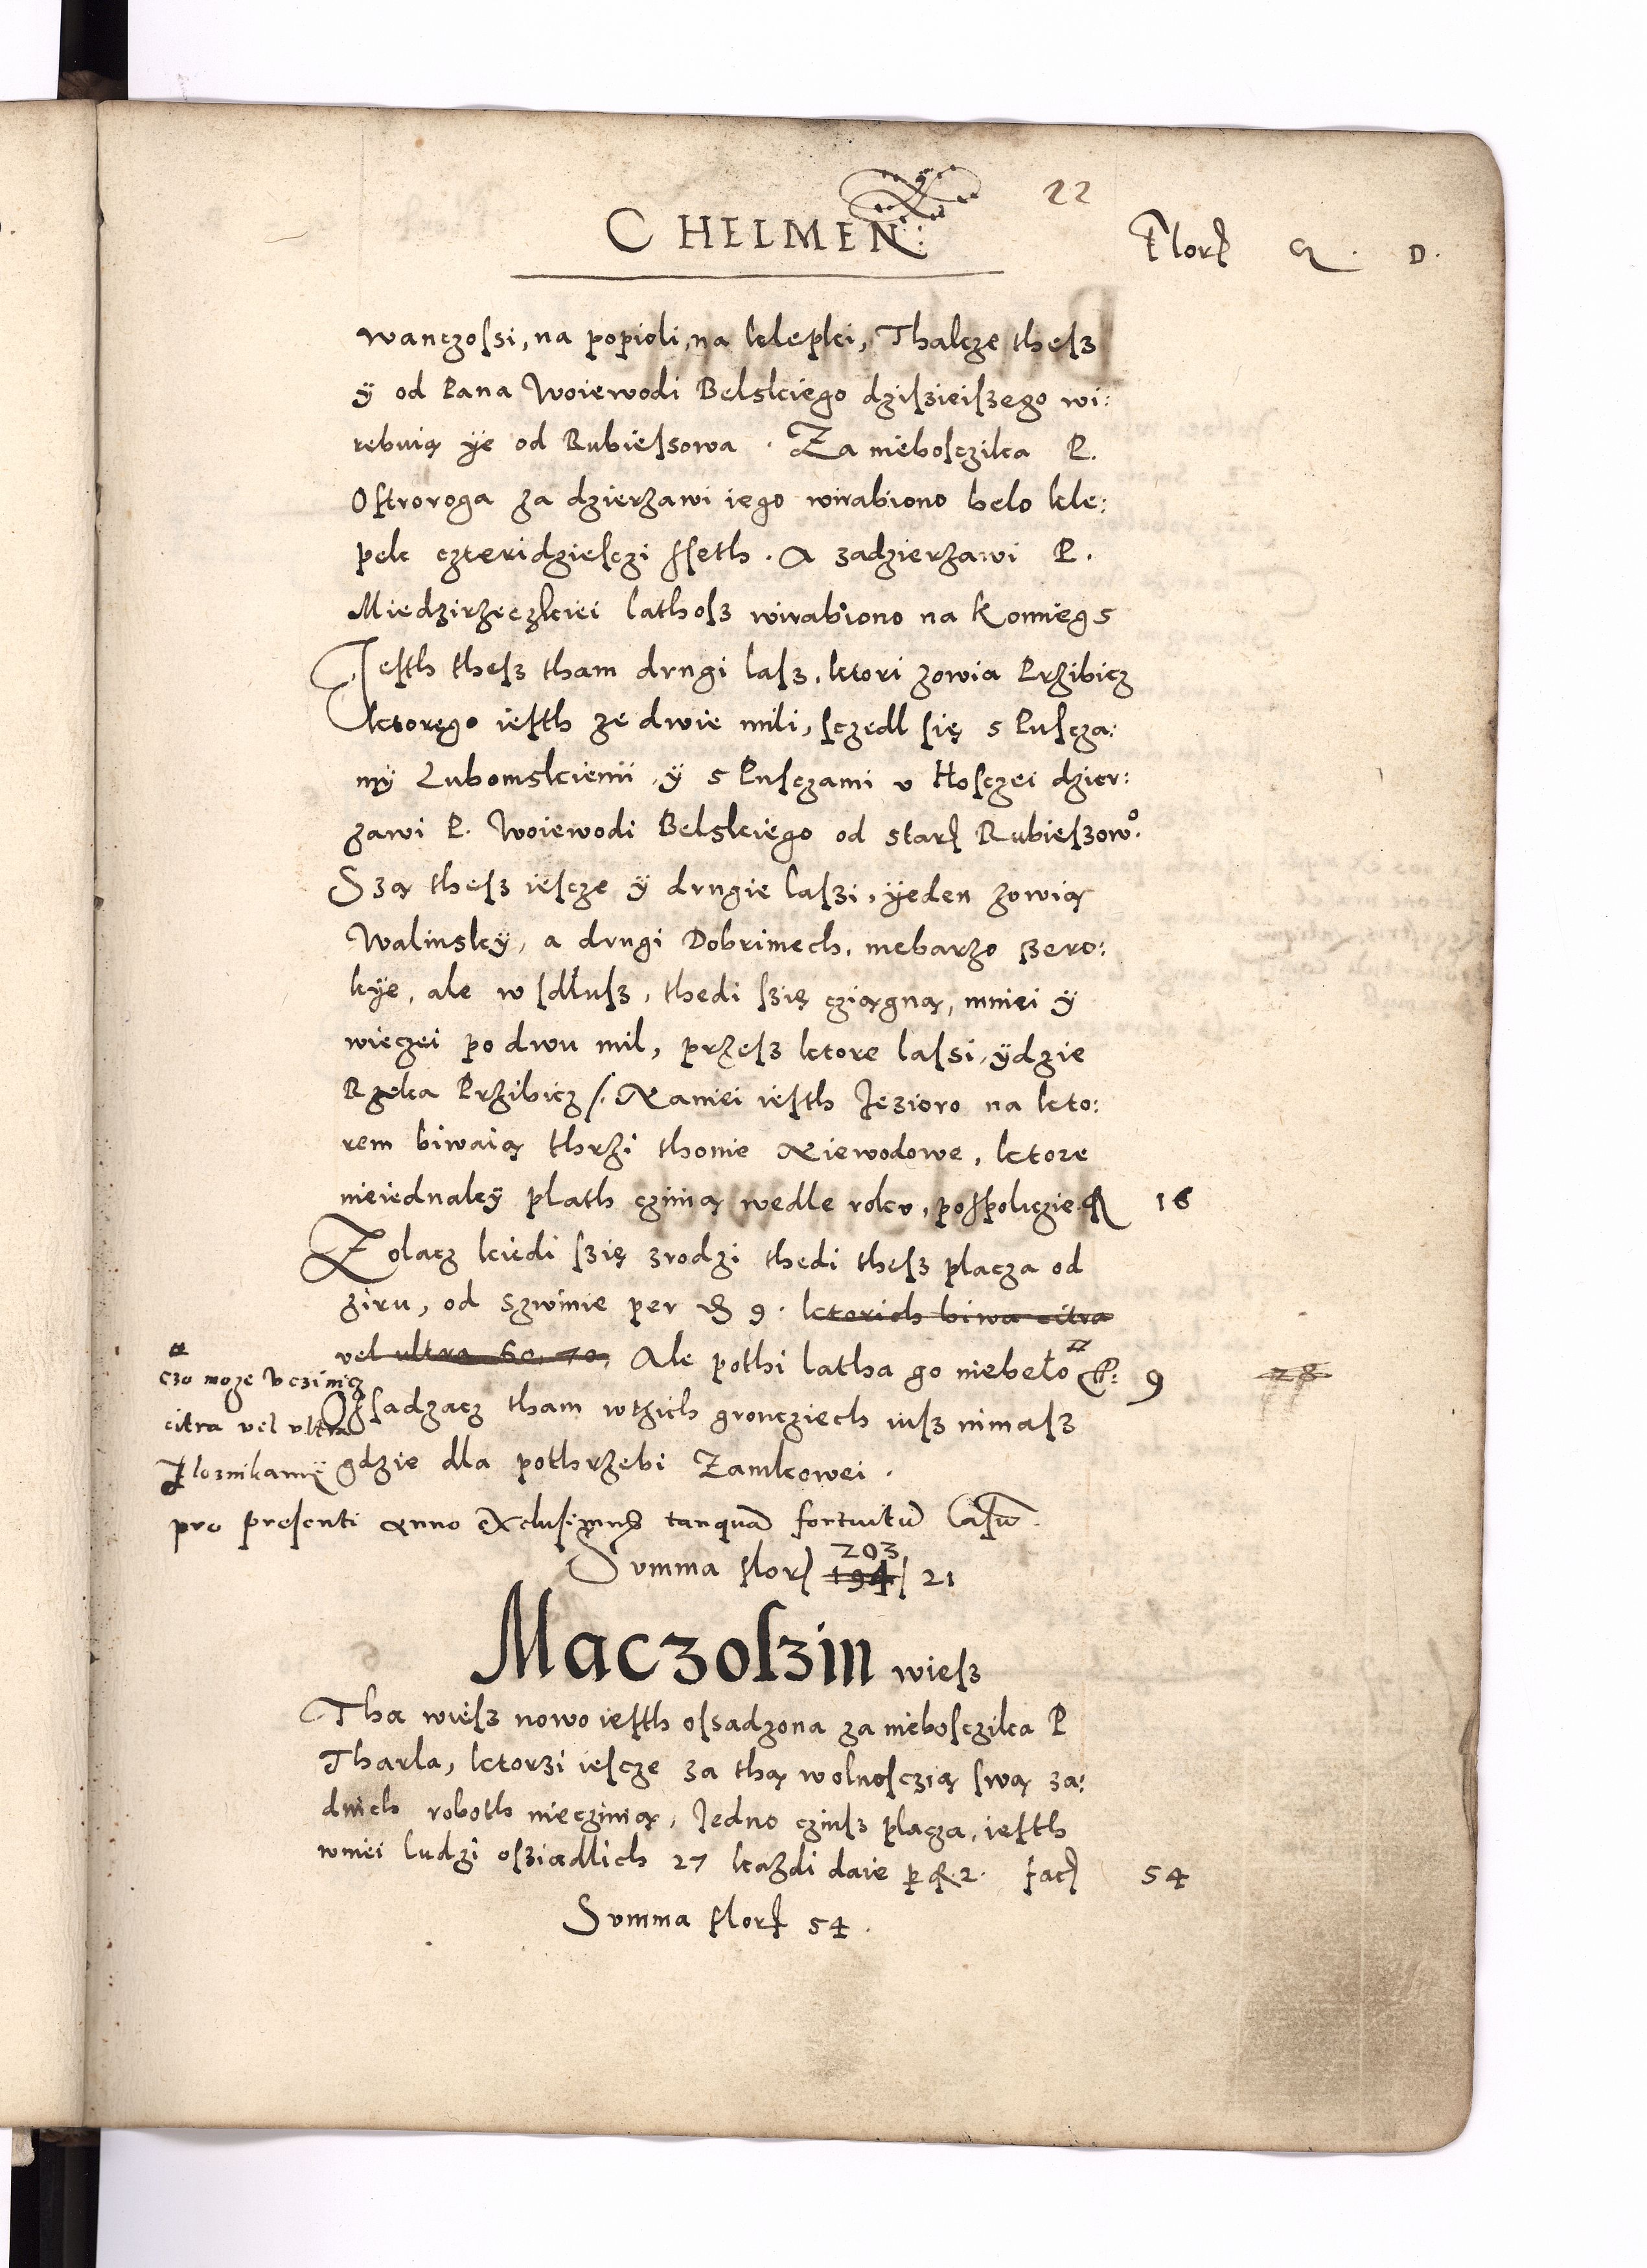 22
CHELMEN:
Flor G. D.
wanczoſsi, na popioli, na klepki, Thakze theſz
ÿ od Pana Woiewodi Belskiego dziſzieiſzego wi:
rebuią ÿe od Rubieſsowa. Za nieboſczika P.
Oſtroroga za dzierzawi iego wirabiono belo kle:
pek czteridzieſczi ſſeth. A zadzierzawi P.
Miedzirzeczkiei lathoſz wirabiono na Komieg 5
Jeſth theſz tham drugi laſz, ktori zowia Przibicz
ktorego ieſth ze dwie mili, ſczedl ſię s Puſcza:
mÿ Lubomskiemi, ÿ s Puſczami v Hoſczei dzier:
zawi P. Woiewodi Belskiego od star Rubieſzow°.
Szą theſz ieſcze ÿ drugie laſzi, ÿeden zowią
Walinskÿ, a drugi Dobrimech, niebarzo szero:
kÿe, ale w ſdłuſz, thedi ſzię cziągną, mniei ÿ
wieczei po dwu mil, przeſz ktore laſsi, ÿdzie
Rzeka Przibicz /. Naniei ieſth Jezioro na kto:
rem biwaią thrzi thonie Niewodowe, ktore
nieiednakÿ plath czinią wedle rokv, poſpoliczie 16
Zolącz kiedi ſzię zrodzi thedi theſz placza od
ziru, od szwinie per 9. ktorich biwa citra
vel ultra 60, 70, Ale pothi latha go niebeło 9 28
czo moze vczinicz
citra vel vltra
Oſsadzacz tham wtzich groncziech iuſz nimaſz
gdzie dla pothrzebi Zamkowei.
pro preſenti anno excluſimus tanquam fortuitum Caſum.
Summa flor 194 203 21
Maczoſzin wieſz
Tha wieſz nowo ieſth oſsadzona za nieboſczika P
Tharla, ktorzi ieſcze za thą wolnoſczią ſwą za:
dnich roboth nieczinią, Jedno czinſz placza, ieſth
wniei ludzi oſziadlich 27 kazdi daie p 2. fac 54
Summa flor 54.